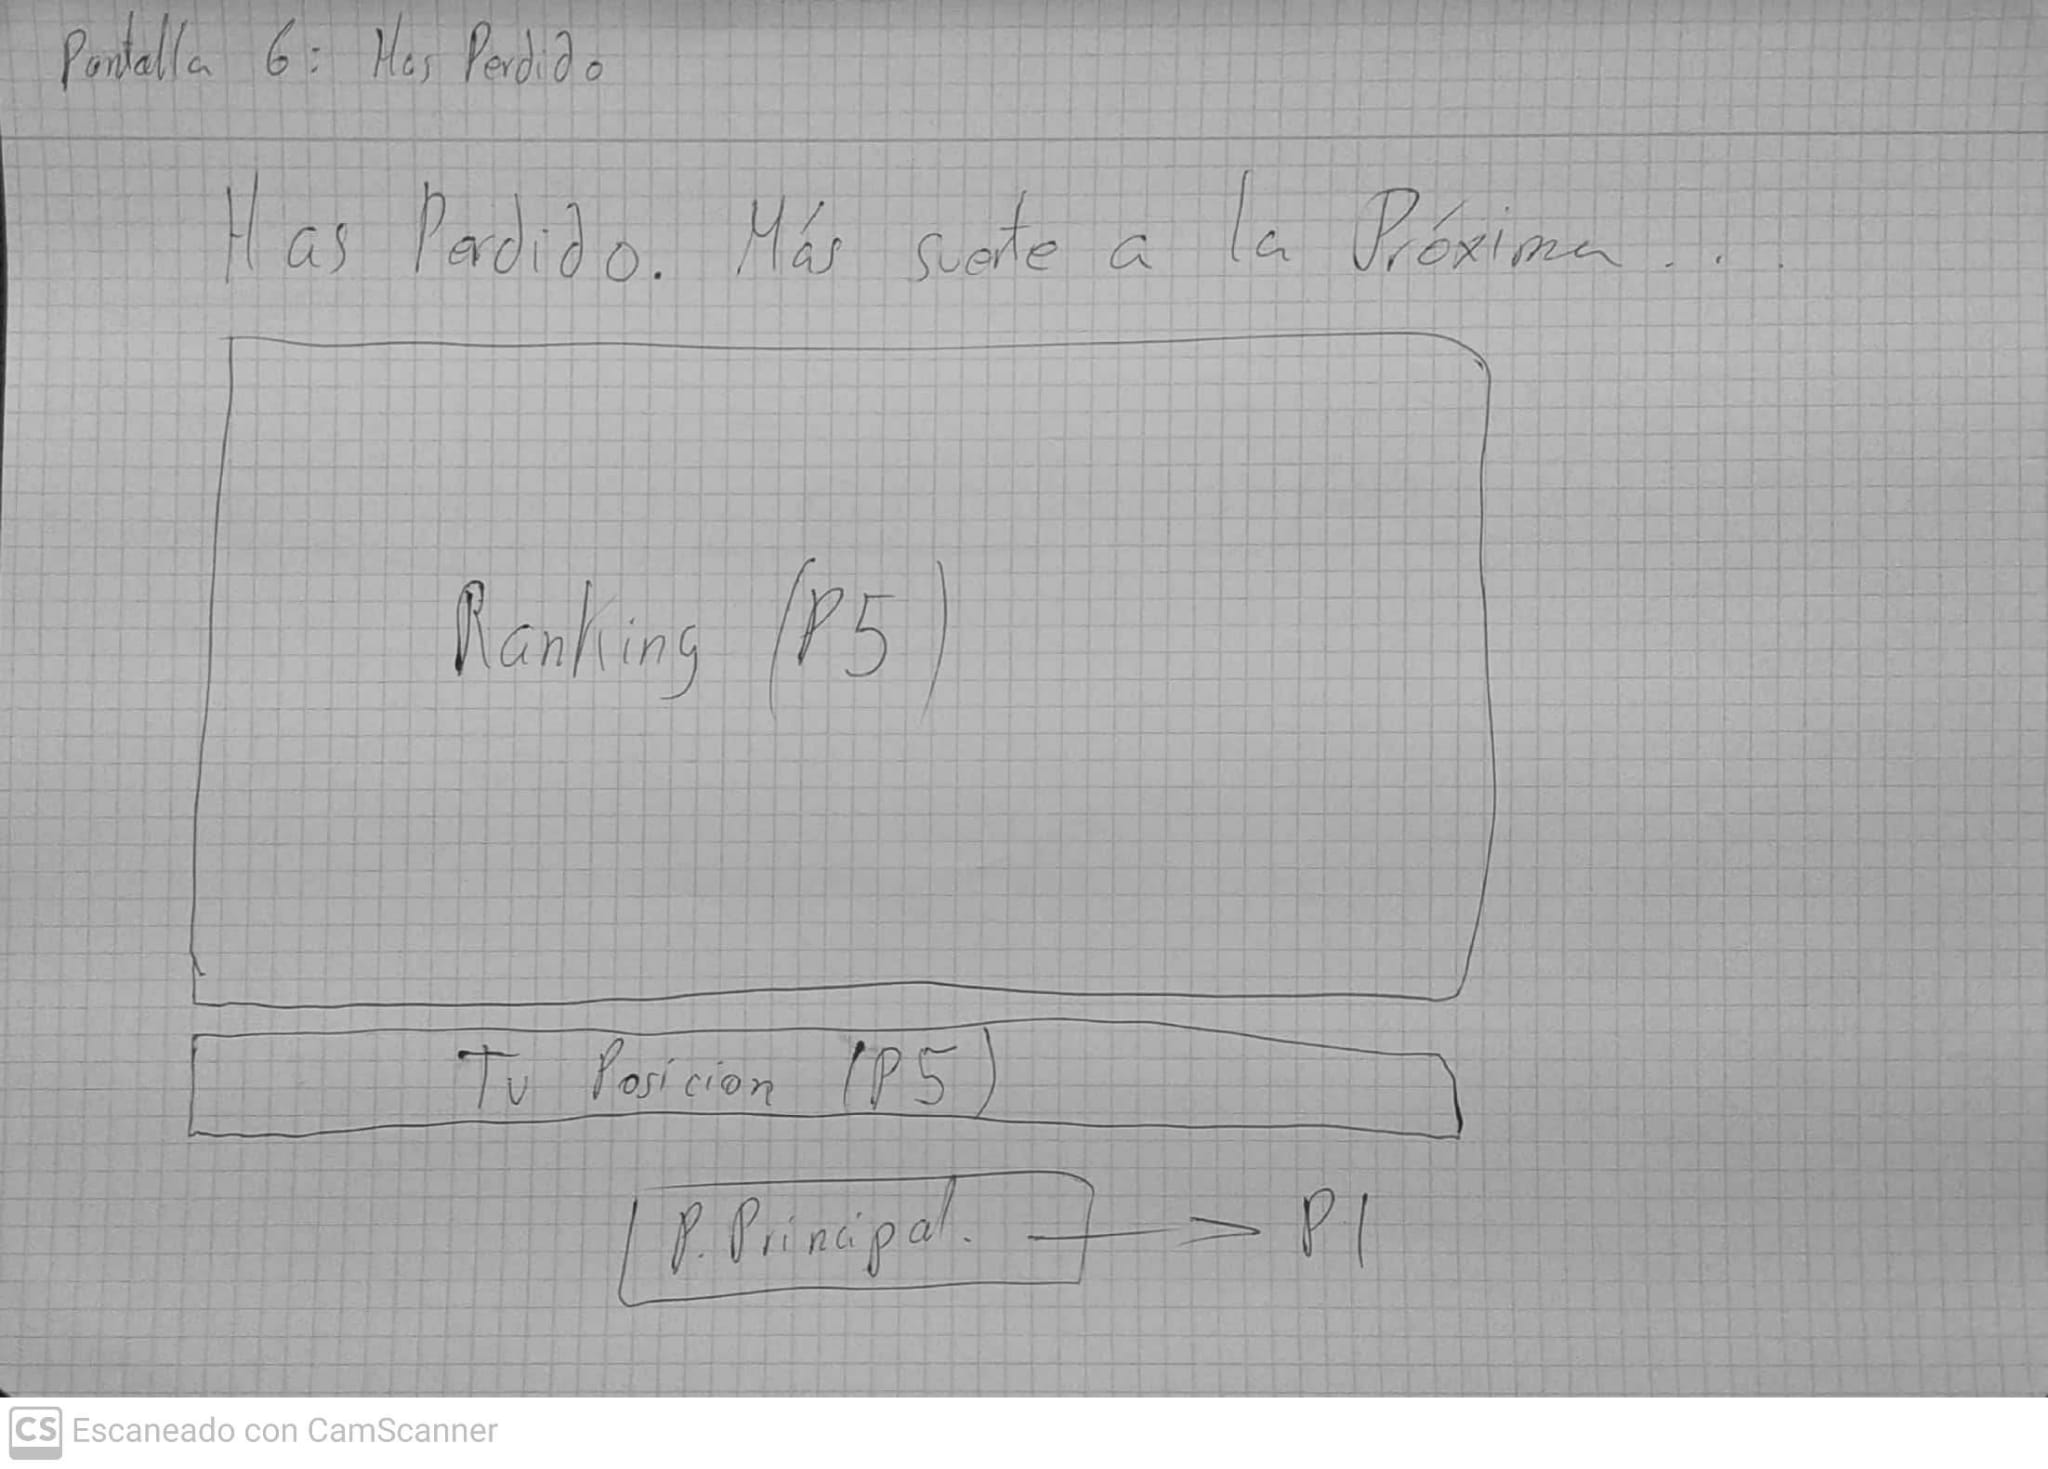 Pantalla 6: Has Perdido
Has Perdido. Más suerte a la Próxima...
Ranking (P5)
Tu Posicion (P5)
P. Principal. → P1
CS Escaneado con CamScanner